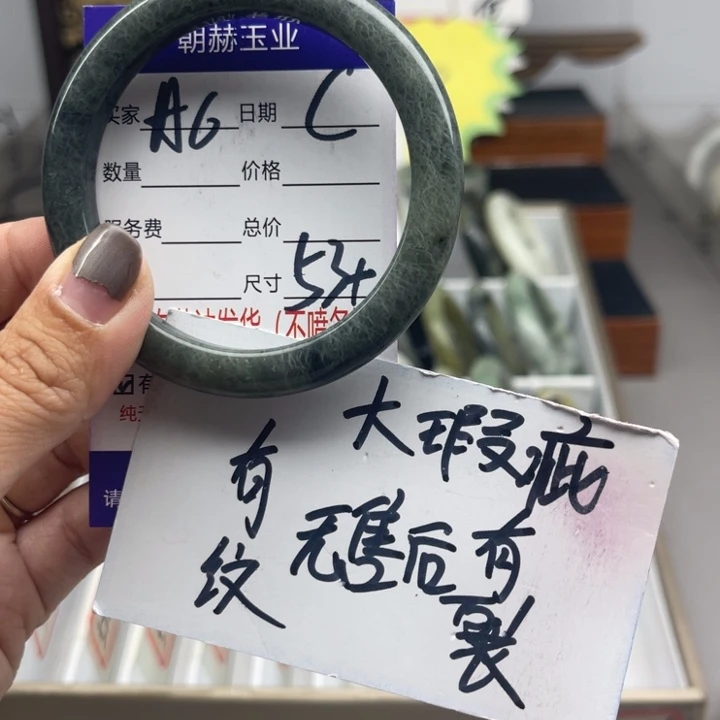 朝赫玉业
买家 A6 日期 C
数量 价格
服务费 总价
尺寸 53+
发货(不喷
有
纯
请
大瑕疵
有纹
无售后有裂